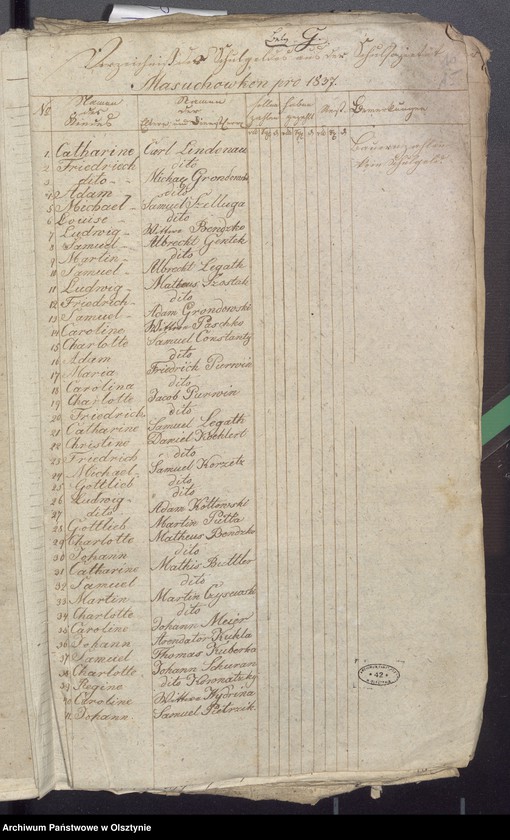 G.
Verzeichniß des Schulgeldes aus der Schulsozietät
Masuchowken pro 1837.
No Namen des Kindes Namen der Eltern und Dienstherrn sollen zahlen haben gezahlt Rest Bemerkungen
1 Catharine Carl Lindenau Bauern zahlen
2 Friedrich dito kein Schulgeld
3 dito Michael Grondowski
4 Adam dito
5 Michael Samuel Szelluga
6 Louise dito
7 Ludwig Wittwe Bendzko
8 Samuel Albrecht Gentek
9 Martin dito
10 Samuel Albrecht Legath
11 Ludwig Matheus Szostak
12 Friedrich dito
13 Samuel Adam Grondowski
14 Caroline Wittwe Paschke
15 Charlotte Samuel Constanty
16 Adam dito
17 Maria Friedrich Purwin
18 Carolina dito
19 Charlotte Jacob Purwin
20 Friedrich dito
21 Catharine Samuel Legath
22 Christine Daniel Kochlert
23 Friedrich dito
24 Michael Samuel Korzetz
25 Gottlieb dito
26 Ludwig dito
27 dito Adam Kottowski
28 Gottlieb Martin Putta
29 Charlotte Matheus Bendzko
30 Johann dito
31 Catharine Mathis Buttler
32 Samuel dito
33 Martin Martin Czyswach
34 Charlotte dito
35 Caroline Johann Meier
36 Johann Arendator Kuhla
37 Samuel Thomas Kuberka
38 Charlotte Johann Schuran
39 Regine dito Kornatzky
40 Caroline Wittwe Wydrina
41 Johann Samuel Pietrzik
42
Archiwum Państwowe w Olsztynie